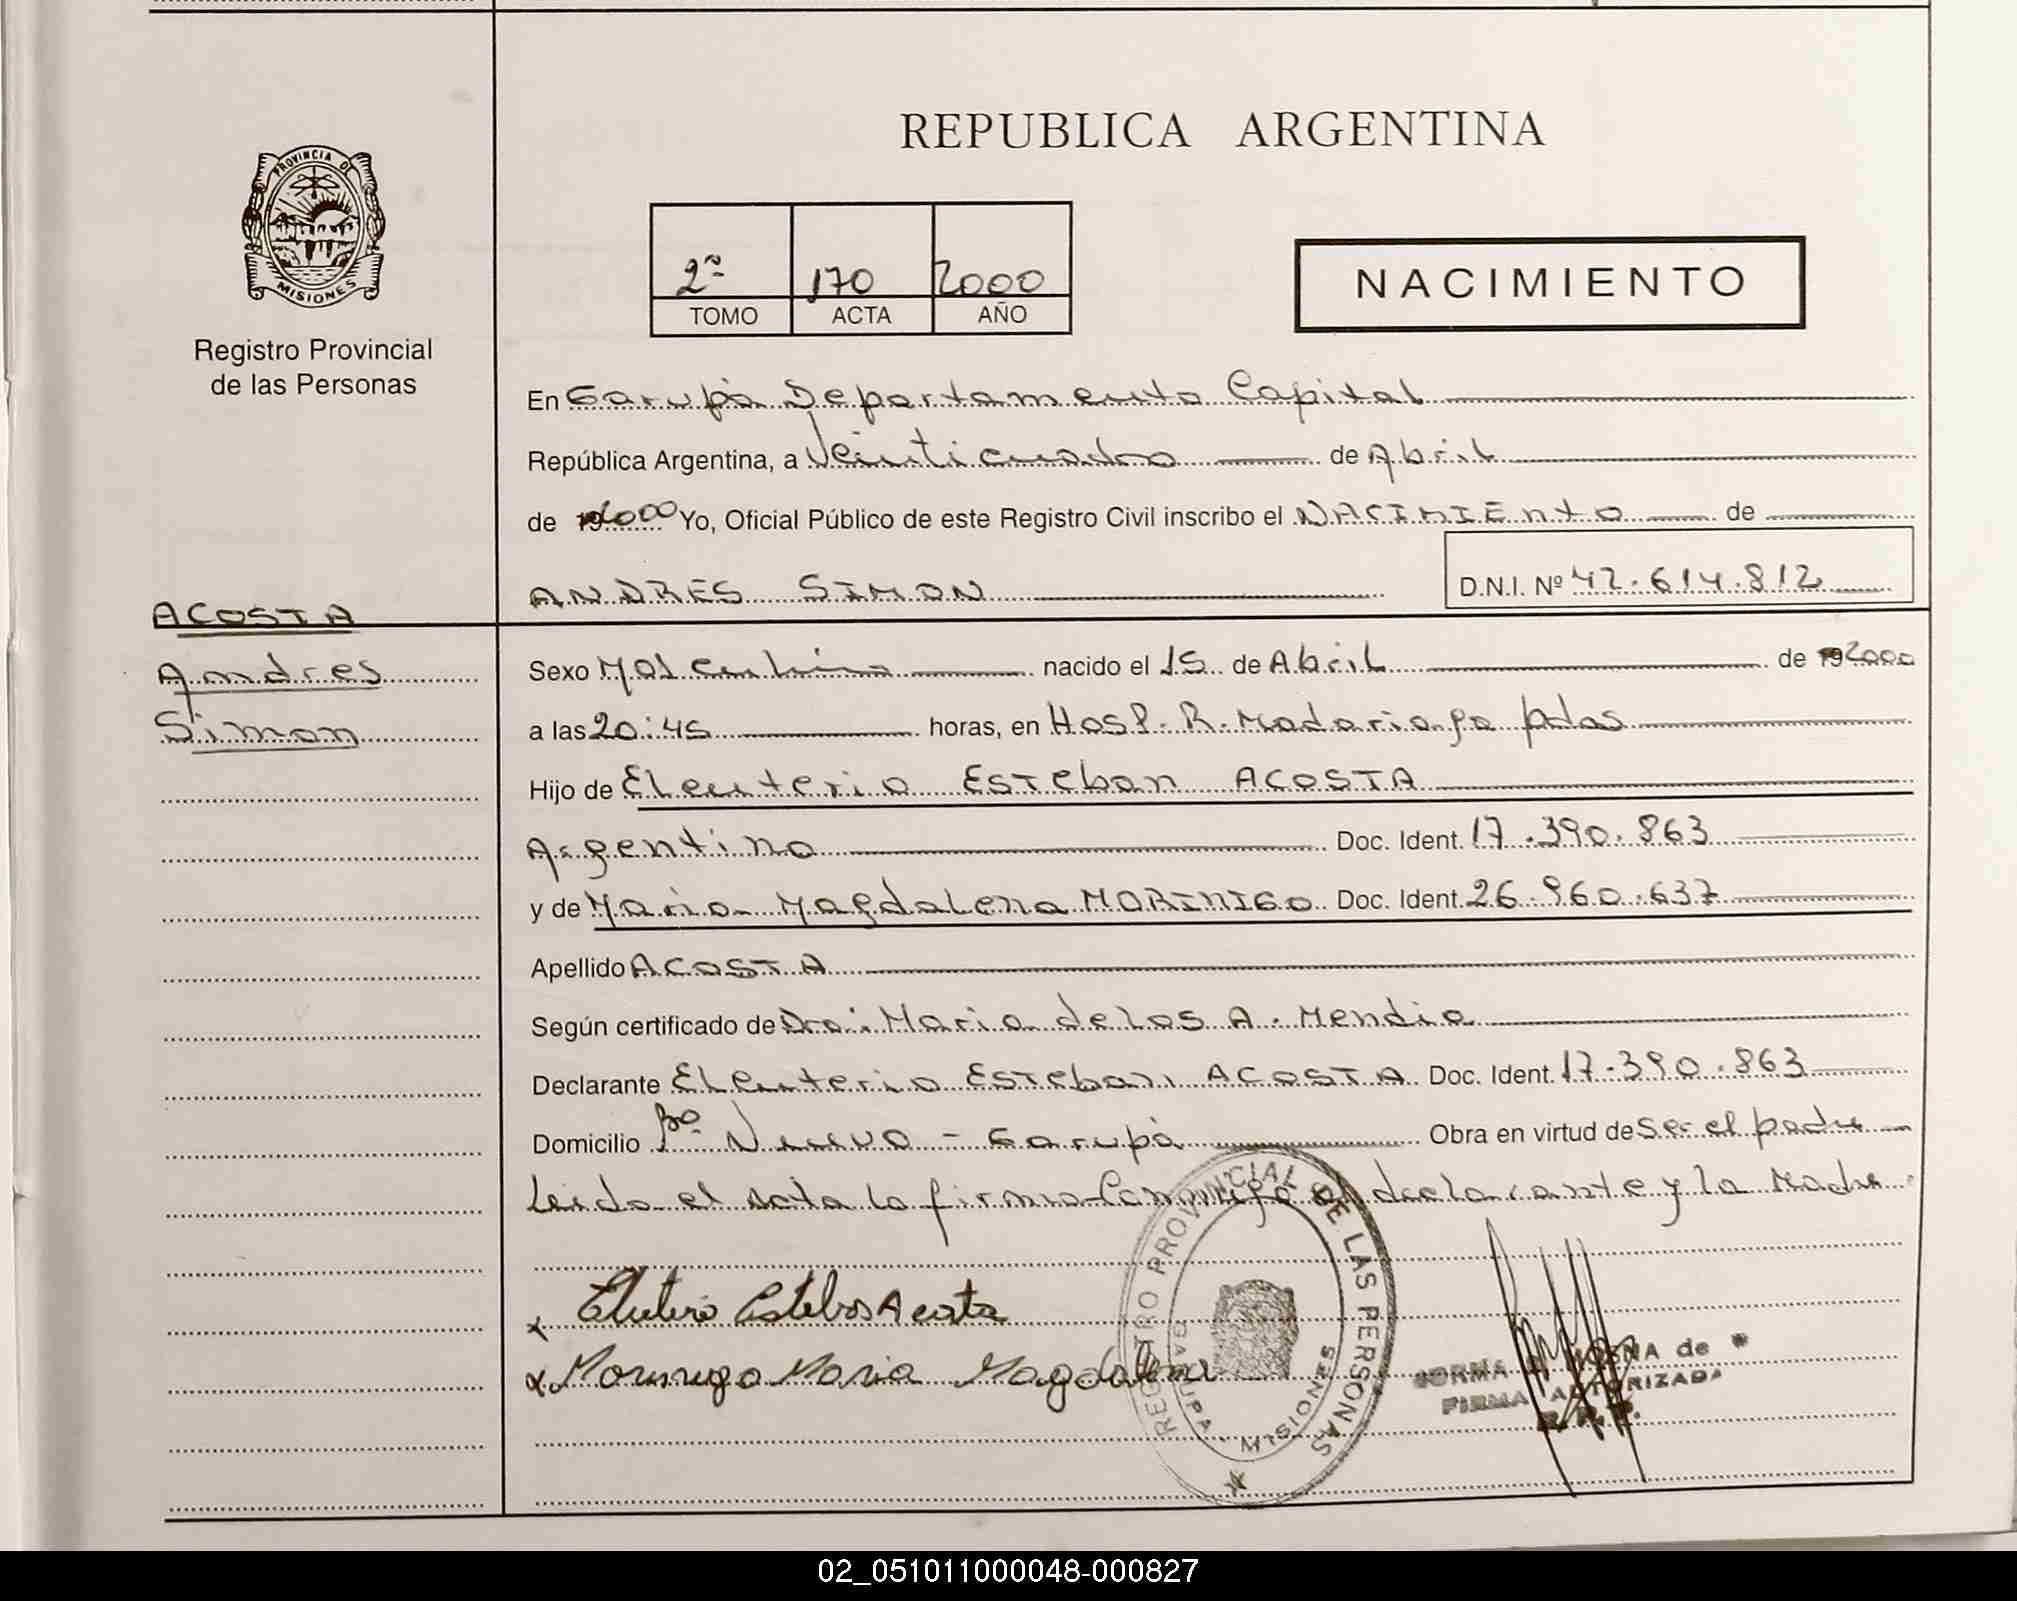 REPUBLICA ARGENTINA
PROVINCIA DE MISIONES
Registro Provincial
de las Personas
2º 170 2000
TOMO ACTA AÑO
NACIMIENTO
En Garupá Departamento Capital
República Argentina, a Veinticuatro de Abril
de 2000 Yo, Oficial Público de este Registro Civil inscribo el NACIMIENTO de
ANDRES SIMON D.N.I. Nº 42.614.812
ACOSTA
Andres
Simon
Sexo Masculino nacido el 15 de Abril de 2000
a las 20:45 horas, en Hosp. R. Madariaga Pdas
Hijo de Eleuterio Esteban ACOSTA
Argentino Doc. Ident. 17.390.863
y de Maria Magdalena MORINIGO Doc. Ident. 26.960.637
Apellido ACOSTA
Según certificado de Dra. Maria de los A. Mendia
Declarante Eleuterio Esteban ACOSTA Doc. Ident. 17.390.863
Domicilio Bº Nuevo - Garupá Obra en virtud de Ser el padre
Leida el acta la firma conmigo el declarante y la Madre
x Eleuterio Esteban Acosta
x Morinigo Maria Magdalena
REGISTRO PROVINCIAL DE LAS PERSONAS
GARUPA MISIONES
NORMA de
FIRMA AUTORIZADA
R.P.P.
02_051011000048-000827